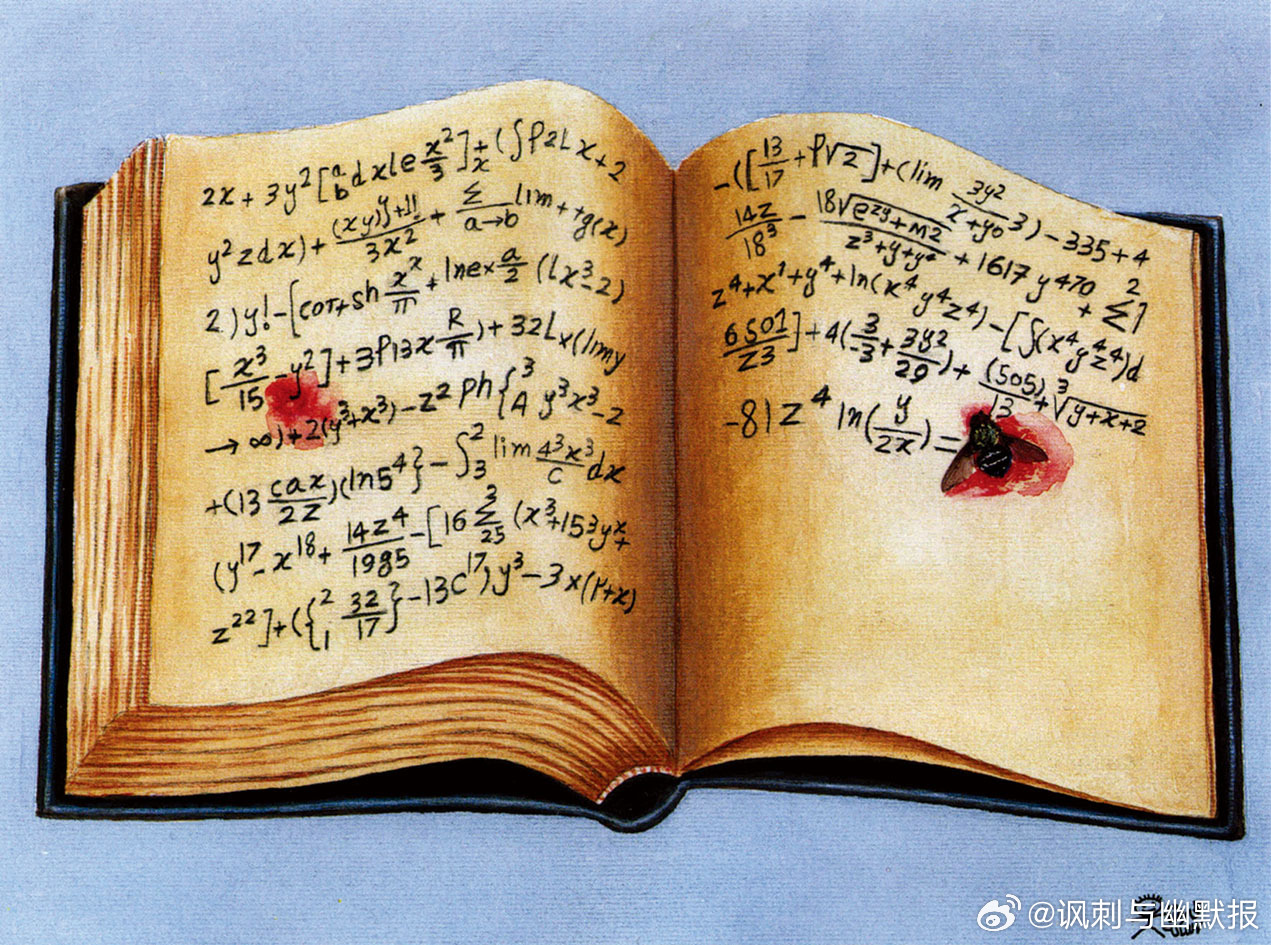 2x + 3y² [ᵃ_b dxle x²/3] + x (∫P2Lx+2
y²zdx) + (xy)y+11/3x² + Σ a→b lim + tg(x)
2) y! - [cot+sh xˣ/π + lnex a/2 (Lx³-2)
[x³/15 - y²] + 3P13x R/π) + 32Lx(limy
→ ∞) + 2(y³+x³) - z² ph {³_A y³x³-2
+(13 cax/2z)(ln5⁴} - ∫₃² lim 4³x³/c dx
(y¹⁷ - x¹⁸ + 14z⁴/1985 - [16 Σ³₂₅ (x³+15³yx+
z²²] + ({²₁ 32/17} - 13c¹⁷) y³ - 3x(4+x)
-([13/17 + P√z] + (lim 3y²/x+y0 3) - 335 + 4
14z/18³ - 18√e^zy+m2/z³+y+y⁴ + 1617 y470 2
z⁴+x¹+y⁴+ln(x⁴y⁴z⁴) - [∫(x⁴y⁴z⁴)d + Σ1
6501/z3] + 4(3/-3 + 3y²/29) + (505)/13 + ³√y+x+2
-81z⁴ ln(y/2x) =
@讽刺与幽默报